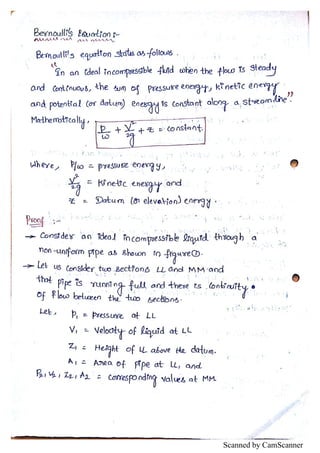 Bernoulli's Equation :-
Bernoulli's equation states as follows.
"In an ideal incompressible fluid when the flow is steady
and continuous, the sum of pressure energy, kinetic energy
and potential (or datum) energy is constant along a streamline."
Mathematically,
P/ω + V²/2g + Z = constant.
where, P/ω = pressure energy,
V²/2g = kinetic energy and
Z = Datum (or elevation) energy.
Proof :-
→ Consider an ideal incompressible liquid through a
non-uniform pipe as shown in figure①.
→ Let us consider two sections LL and MM and
that pipe is running full and there is continuity
of flow between the two sections.
Let, P₁ = pressure at LL
V₁ = Velocity of liquid at LL
Z₁ = Height of LL above the datum.
A₁ = Area of pipe at LL, and
P₂, V₂, Z₂, A₂ = corresponding values at MM
Scanned by CamScanner